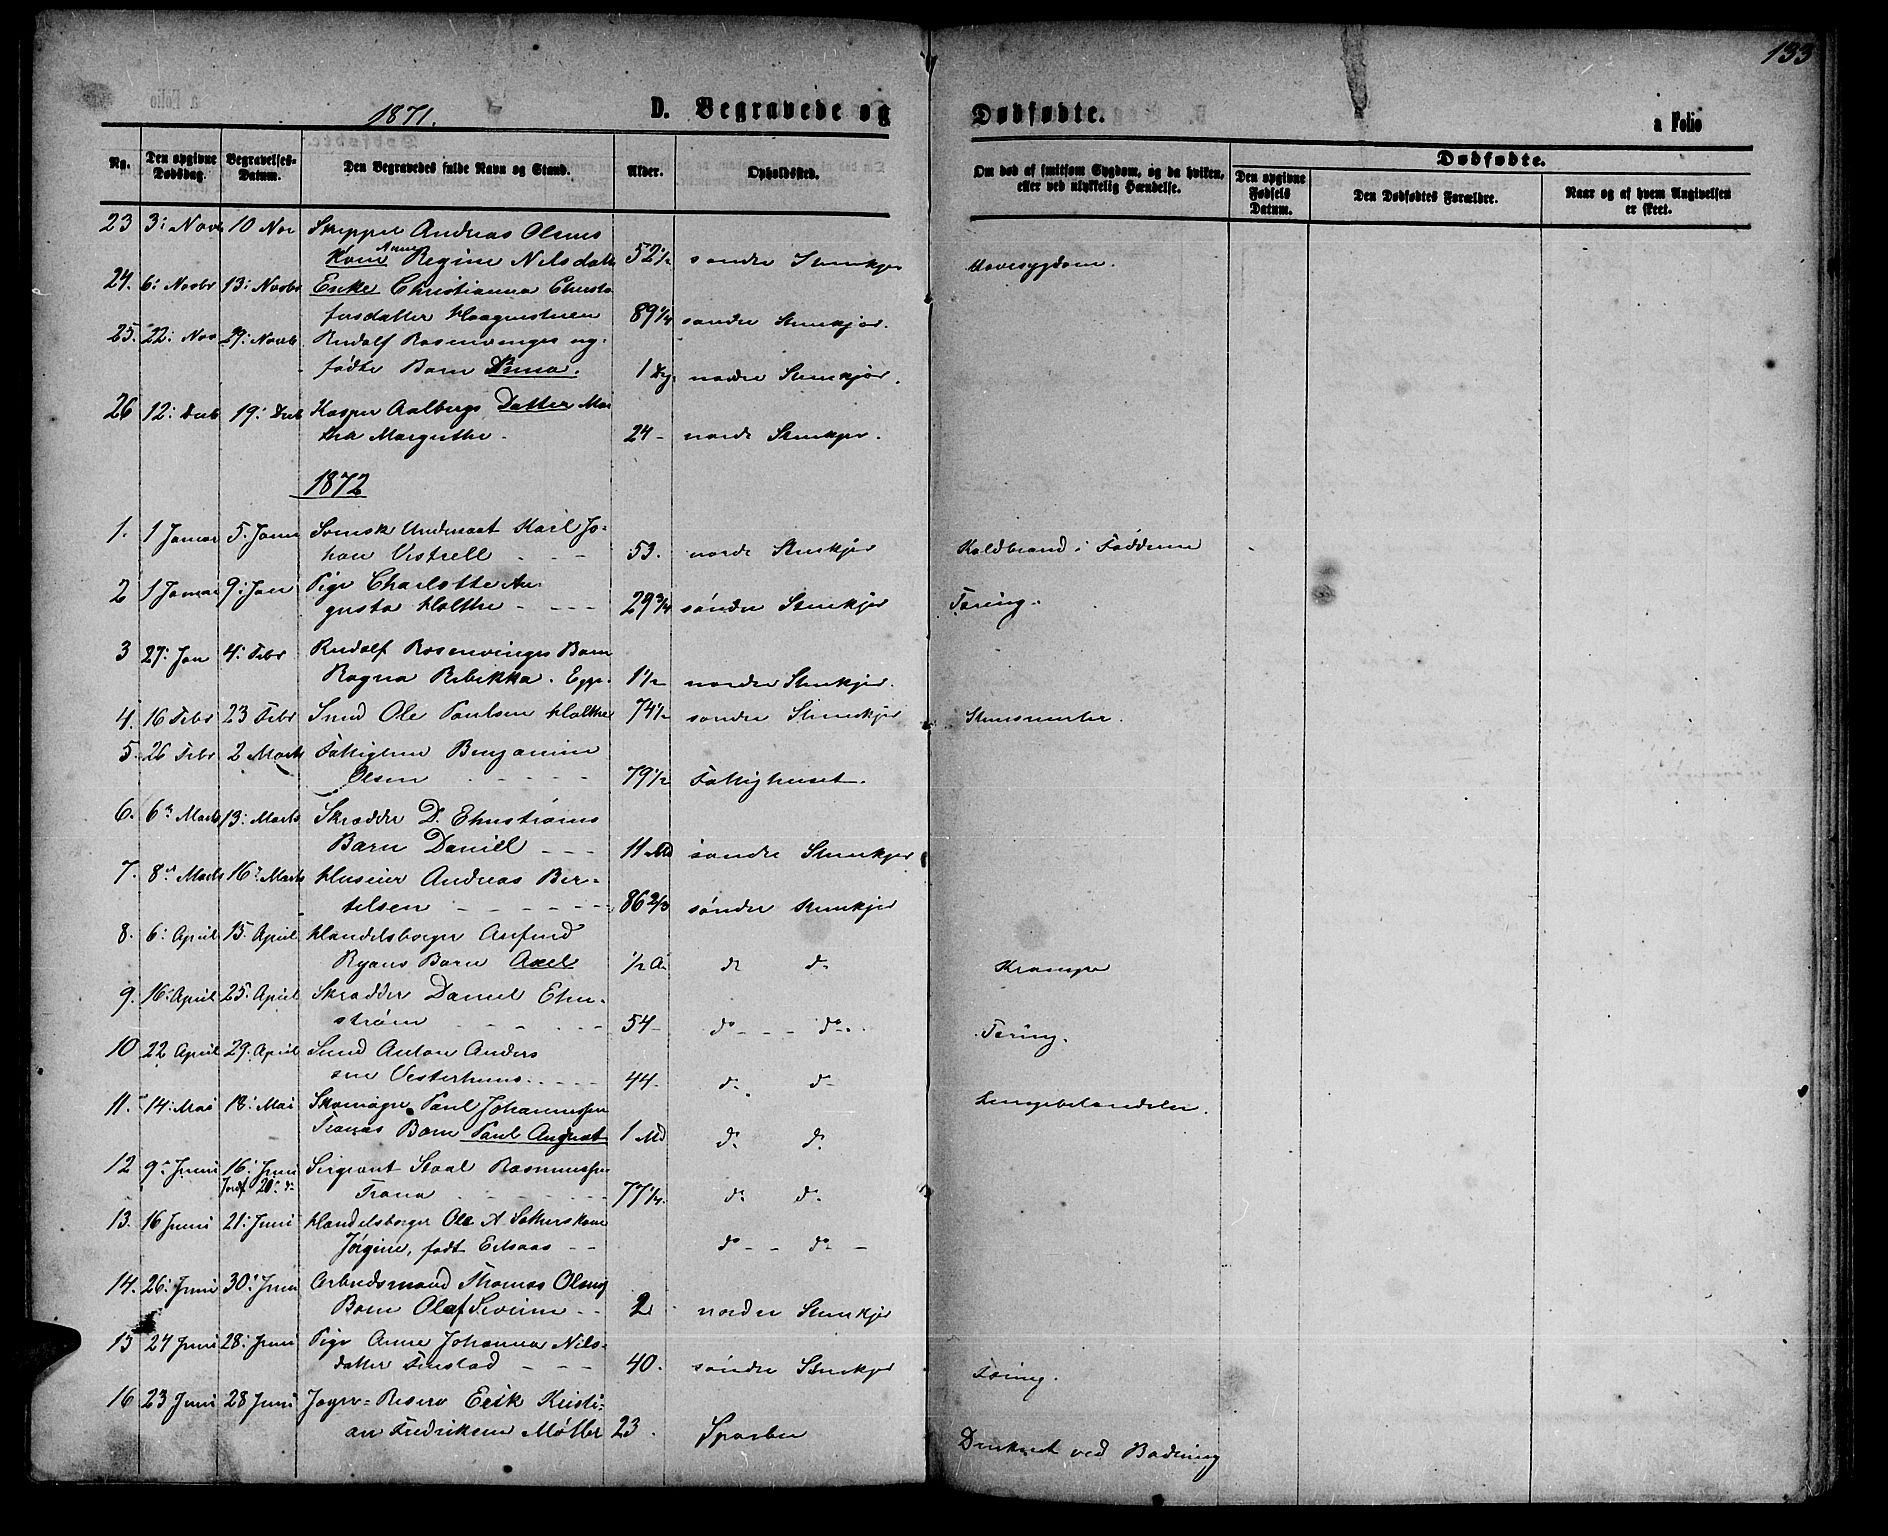 133
1871.
D. Begravede og Dødfødte.
a Folio
No. Den opgivne Dødsdag. Begravelses-Datum. Den Begravedes fulde Navn og Stand. Alder. Opholdssted.
Om død af smitsom Sygdom, og da hvilken, eller ved ulykkelig Hændelse.
Dødfødte.
Den opgivne Fødsels Datum. Den Dødfødtes Forældre. Naar og af hvem Angivelsen er skeet.
23 3: Nov 10 Nov Skipper Andreas Olsens
Kone Regine Nilsdatt 52 1/2 søndre Stenkjer Mavesygdom.
24. 6: Novbr 13: Novbr Enke Christianna Christo
fersdatter 89 1/4 søndre Stenkjær.
25. 22: Nov 29: Novb Rudolf Rosenvinges og
fødte Barn 1 Dg. nordre Stenkjær.
26 12: Decb 19: Decb Kasper Aalbergs Datter Mar
tha Margrethe. 24 - nordre Stenkjer.
1872
1. 1 Januar 5. Janu Svensk Undersaat Karl Jo-
han Vestrell 53. nordre Stenkjer Koldbrand i Fødderne
2 1 Januar 9: Jan Pige Charlotte Au-
gusta Holthe - - - - 29 3/4 søndre Stenkjer Tæring.
3 27: Jan 4: Febr Rudolf Rosenvinges Barn
Ragna Rebekka. Egge. 1 1/2 nordre Stenkjer.
4. 16 Febr 23 Febr Smed Ole Paulsen Holthe 74 1/2 søndre Stenkjer Stensmerter.
5. 26 Febr 2 Marts Fattiglem Benjamin
Olsen - - - - - 79 1/2 Fattighuset.
6. 6: Marts 13: Marts Skrædder D. Ehnstrøms
Barn Daniel - - - 11 Md søndre Stenkjer
7. 8: Marts 16: Marts Huseier Andreas Ber-
telsen - - - - - - 86 2/3 søndre Stenkjer
8. 6: April 15. April Handelsborger Anfind
Ryans Barn Axel 1/2 A. do do Krampe
9. 16: April 25. April Skrædder Daniel Ehn-
strøm - - - - - 54 - do - - - do. Tæring.
10 22 April 29. April Smed Anton Anders
sen Vesterhuus. - - - 44 - do do
11. 14: Mai 18: Mai Skomager Paul Johannessen
Tranas Barn Paul August 1 Md do do Lungebetændelse.
12 9: Juni 16: Juni Sergeant Staal Rasmussen
Jordf 20: do Trana - - - - - 77 1/4. do do
13. 16 Juni 21: Juni Handelsborger Ole A. Sathers kone
Jørgine, født Eilsaas - - do - - do -
14. 26: Juni 30: Juni Arbeidsmand Thomas Olsens
Barn Olaf Severin - - 2 nordre Stenkjer
15 24 Juni 28: Juni Pige Anne Johanna Nils-
datter Finstad - - - 40. søndre Stenkjer Tæring.
16 23 Juni 28 Juni Jæger-Reserv Erik Kristi-
an Fredriksen Møller 23. Sparbu Druknet ved Badning